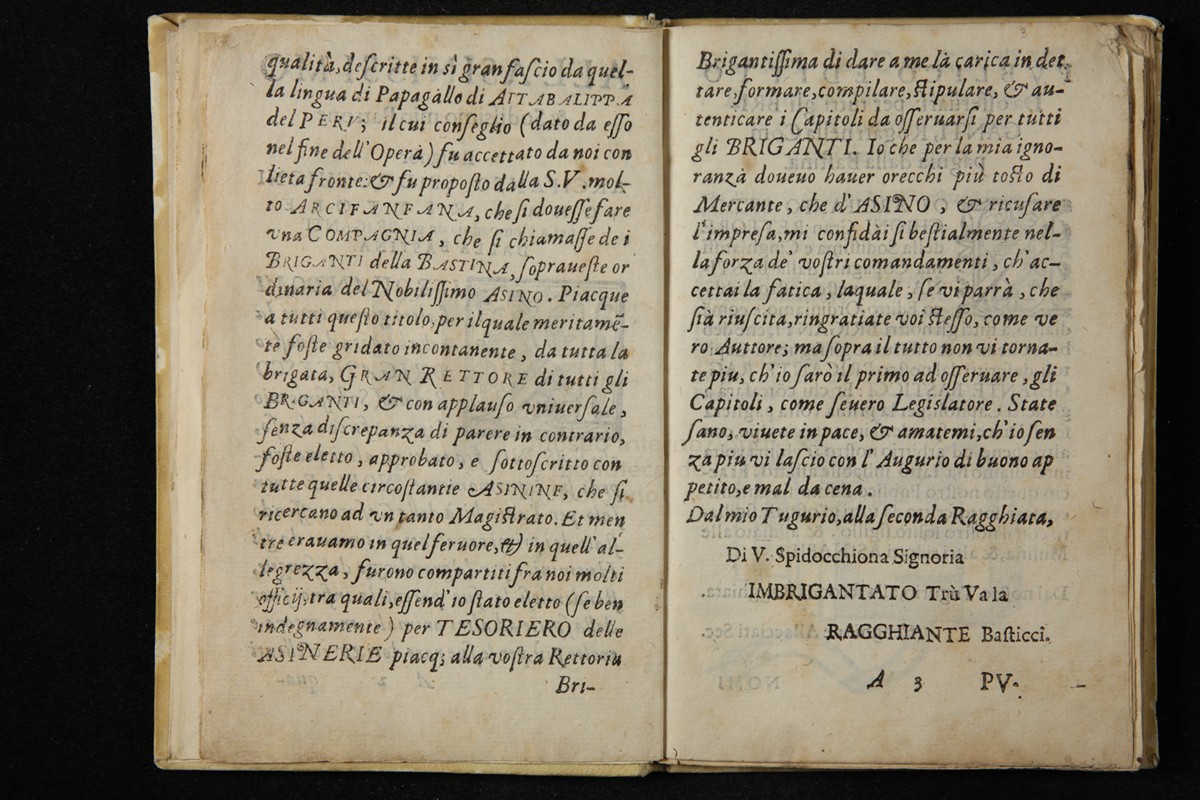 qualità, deſcritte in sì gran faſcio da quel-
la lingua di Papagallo di AITABALIPPA
del PERV; il cui conſeglio (dato da eſſo
nel fine dell'Opera) fu accettato da noi con
lieta fronte: & fu propoſto dalla S.V. mol-
to ARCIFANFANA, che ſi doueſſe fare
vna COMPAGNIA, che ſi chiamaſſe de i
BRIGANTI della BASTINA, ſoprauеſte or
dinaria del Nobiliſſimo ASINO. Piacque
a tutti queſto titolo, per il quale meritamẽ-
te foſte gridato incontanente, da tutta la
brigata, GRAN RETTORE di tutti gli
BRIGANTI, & con applauſo vniuerſale,
ſenza diſcrepanza di parere in contrario,
foſte eletto, approbato, e ſottoſcritto con
tutte quelle circoſtantie ASININE, che ſi
ricercano ad vn tanto Magiſtrato. Et men
tre erauamo in quel feruore, & in quell'al-
legrezza, furono compartiti fra noi molti
officij, tra quali, eſſend'io ſtato eletto (ſe ben
indegnamente) per TESORIERO delle
ASINERIE piacq; alla voſtra Rettoria
Bri-
Brigantiſſima di dare a me la carica in det
tare, formare, compilare, ſtipulare, & au-
tenticare i Capitoli da oſſeruarſi per tutti
gli BRIGANTI. Io che per la mia igno-
ranza doueuo hauer orecchi più toſto di
Mercante, che d'ASINO, & ricuſare
l'impreſa, mi confidai ſi beſtialmente nel-
la forza de' voſtri comandamenti, ch'ac-
cettai la fatica, laquale, ſe vi parrà, che
ſià riuſcita, ringratiate voi ſteſſo, come ve
ro Auttore; ma ſopra il tutto non vi torna-
te piu, ch'io ſarò il primo ad oſſeruare, gli
Capitoli, come ſeuero Legislatore. State
ſano, viuete in pace, & amatemi, ch'io ſen
za piu vi laſcio con l'Augurio di buono ap
petito, e mal da cena.
Dal mio Tugurio, alla ſeconda Ragghiata,
Di V. Spidocchiona Signoria
IMBRIGANTATO Trù Va la
RAGGHIANTE Baſticci.
A 3 PV-